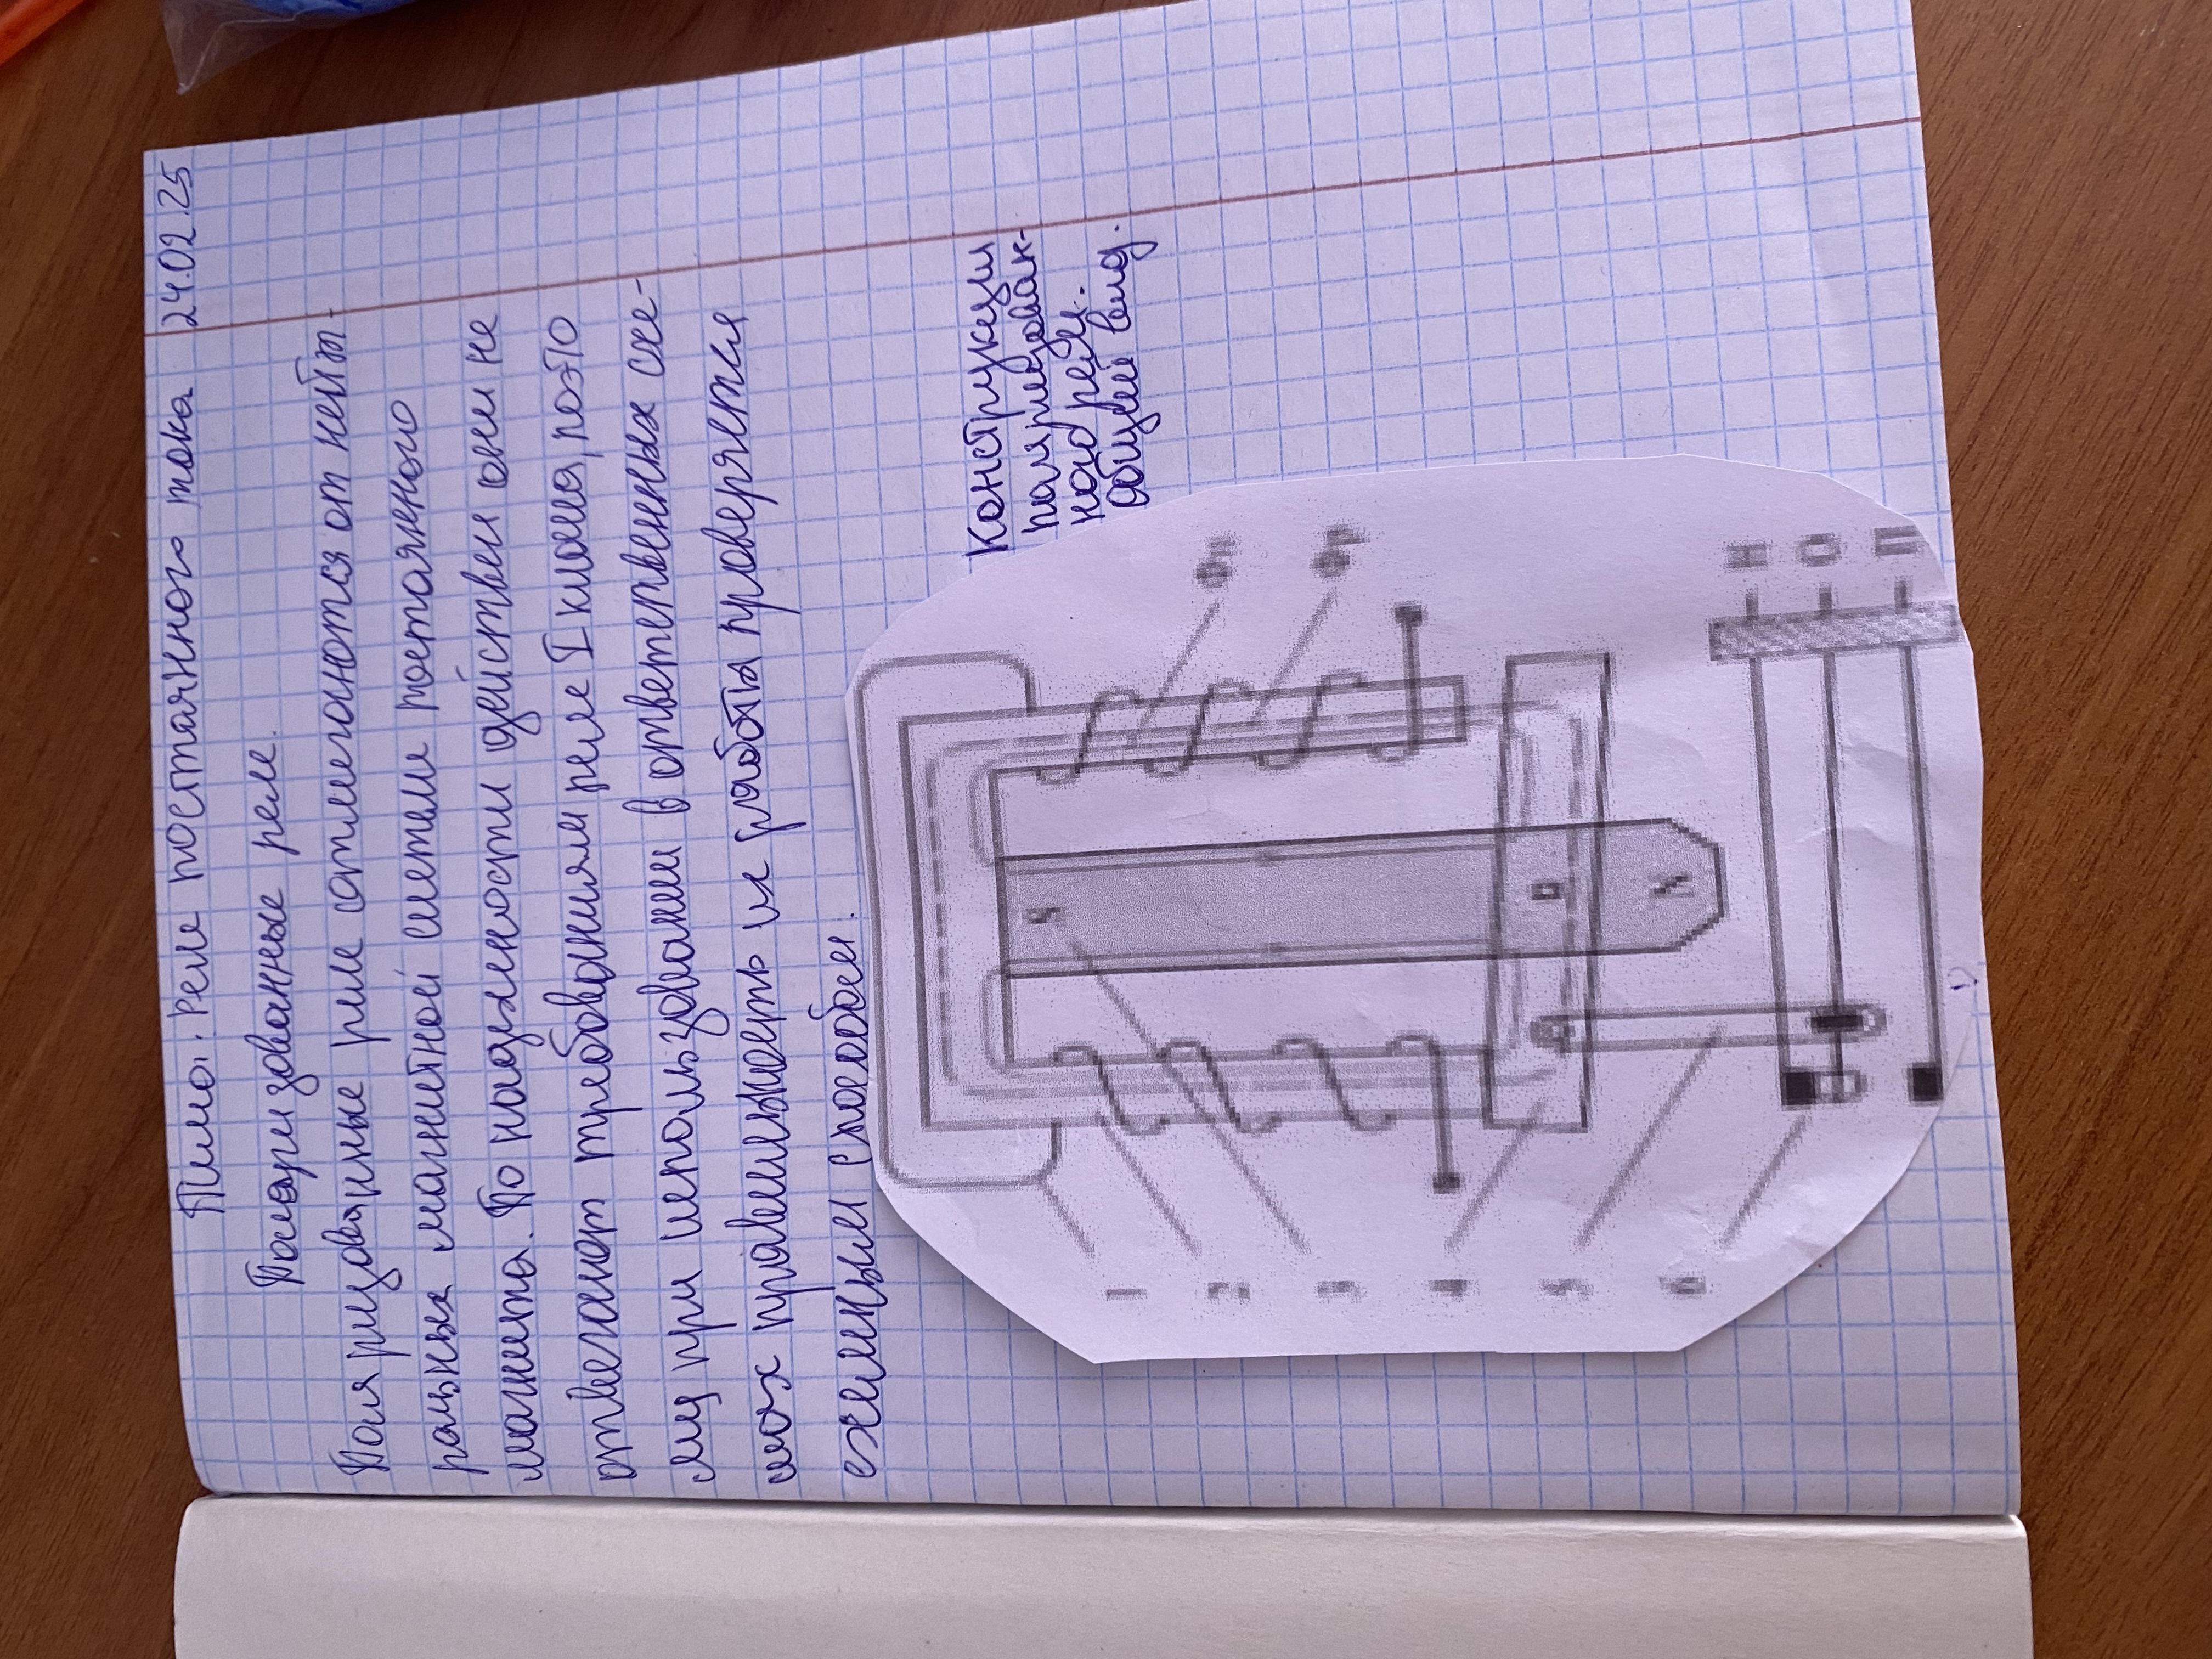 Тема: Реле постоянного тока 24.02.25
Поляризованные реле.
Поляризованные реле отличаются от нейт-
ральных магнитной системы постоянного
магнита. По надежности действия они не
отвечают требованиям реле I класса, поэто
му при использовании в ответственных схе-
мах правильность их работы проверяется
схемным способом.
Конструкции
поляризован-
ной реле.
общий вид.
Фп
Фэ
S
N
1
2
3
4
5
6
Н
О
П